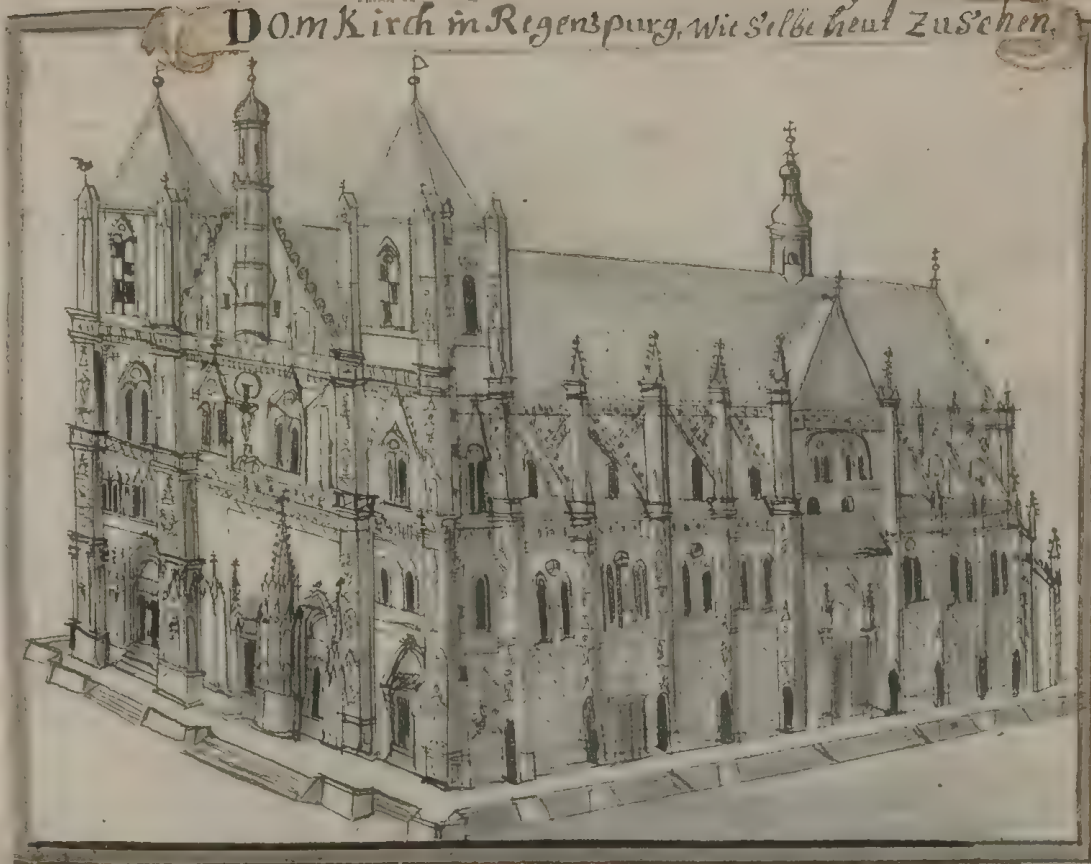 DOmKirch in Regenspurg, wie Selbe heut ZuSehen,